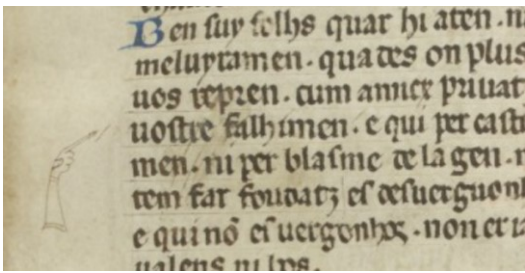 Ben suy folhs quar hi aten · n
meluyramen · quades on plus
uos repren · cum amicx priuat
uostre falhimen · e qui per casti
men · ni per blasme de la gen · n
tem far foudatz es desuergonh
e qui nõ es uergonhos · non er ia
ualens ni lps.